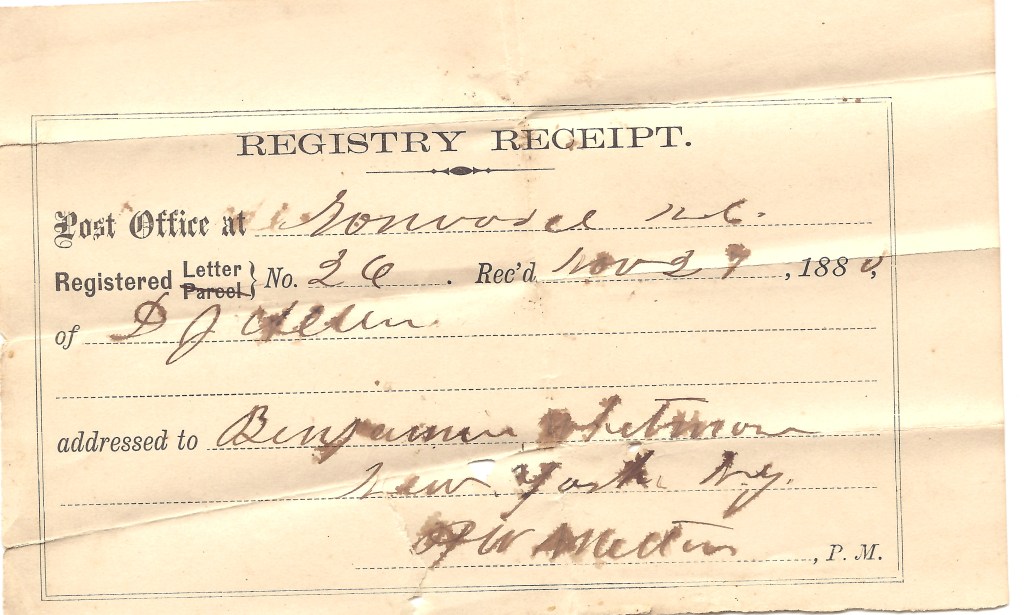 REGISTRY RECEIPT.
Post Office at Norwood N.C.
Registered Letter Parcel } No. 26. Rec'd Nov 27, 1880,
of D J Allen
addressed to Benjamin Whitmore
New York N.Y.
W, P. M.